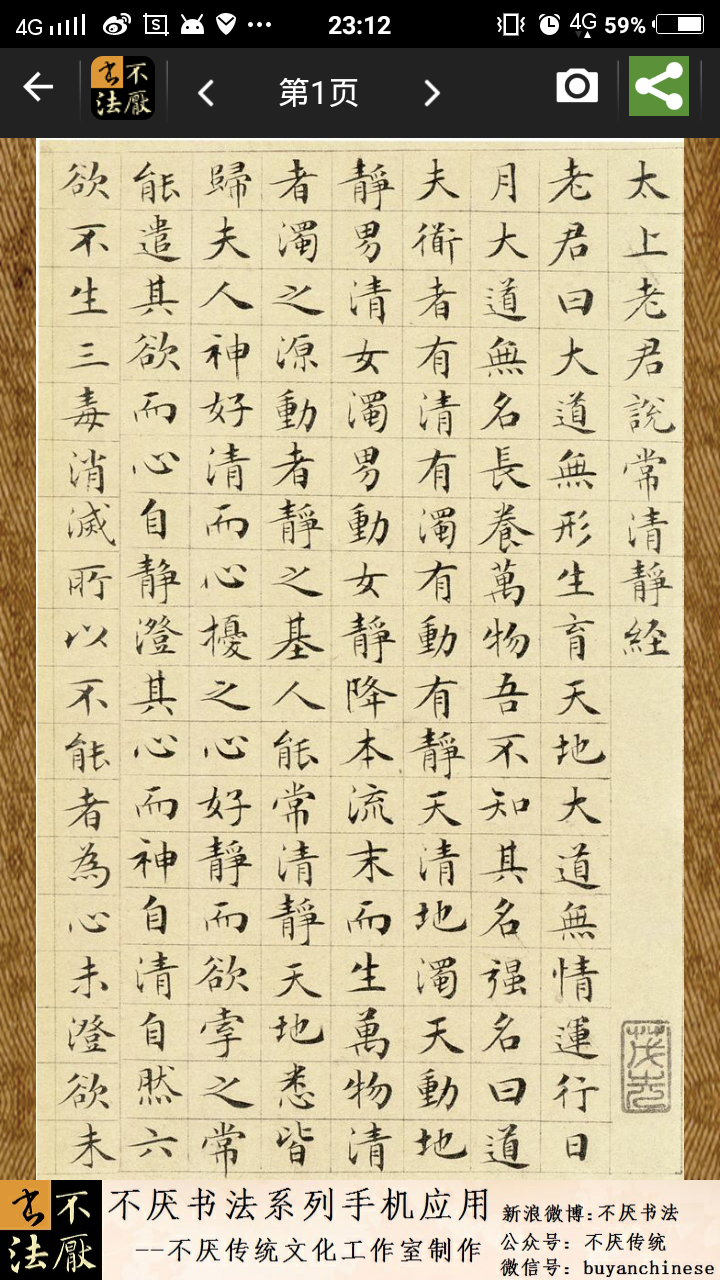 4G 23:12 4G 59%
不厭书法
第1页
太上老君說常清靜経
老君曰大道無形生育天地大道無情運行日
月大道無名長養萬物吾不知其名强名曰道
夫衜者有清有濁有動有靜天清地濁天動地
靜男清女濁男動女靜降本流末而生萬物清
者濁之源動者靜之基人能常清靜天地悉皆
歸夫人神好清而心擾之心好靜而欲牽之常
能遣其欲而心自静澄其心而神自清自然六
欲不生三毒消滅所以不能者為心未澄欲未
不厭书法
不厌书法系列手机应用
--不厌传统文化工作室制作
新浪微博:不厌书法
公众号：不厌传统
微信号：buyanchinese